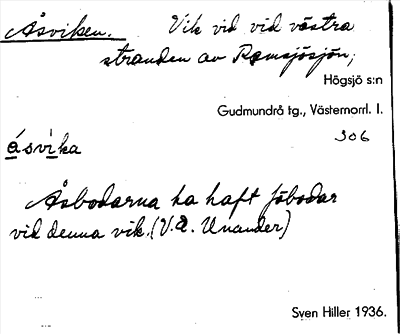 Åsviken. Vik vid vid västra
stranden av Ramsjösjön;
Högsjö s:n
Gudmundrå tg., Västernorrl. l.
306
åsvika
Åsbodarna ha haft fäbodar
vid denna vik. (V.a. Unander)
Sven Hiller 1936.